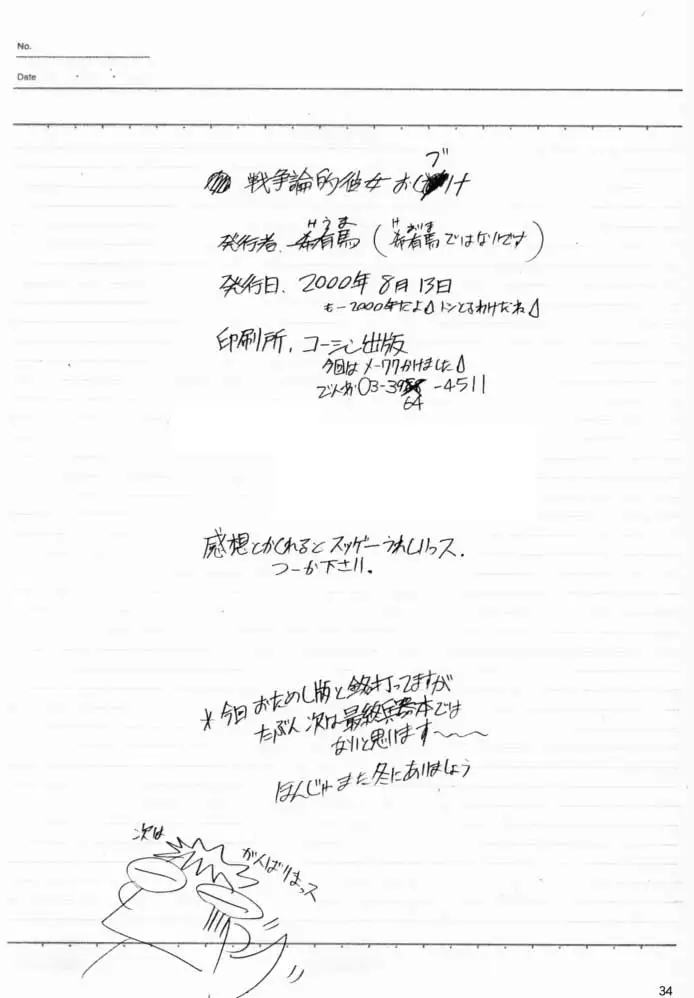 No.
Date
ブ
戦争論的彼女 おし け
発行者. 希有馬 (希有馬ではないです)
発行日. 2000年 8月 13日
もー2000年だよ トシとるわけだね
印刷所. コーシン出版
今回はメーワクかけました
でんわ 03-39 -4511
64
感想とかくれるとスッゲーうれしいっス.
つーか下さい.
*今回おためし版と銘打ってますが
たぶん次は最終兵器本では
ないと思います〜〜〜
ほんじゃまた冬にあいましょう
次は
がんばりまっス
34